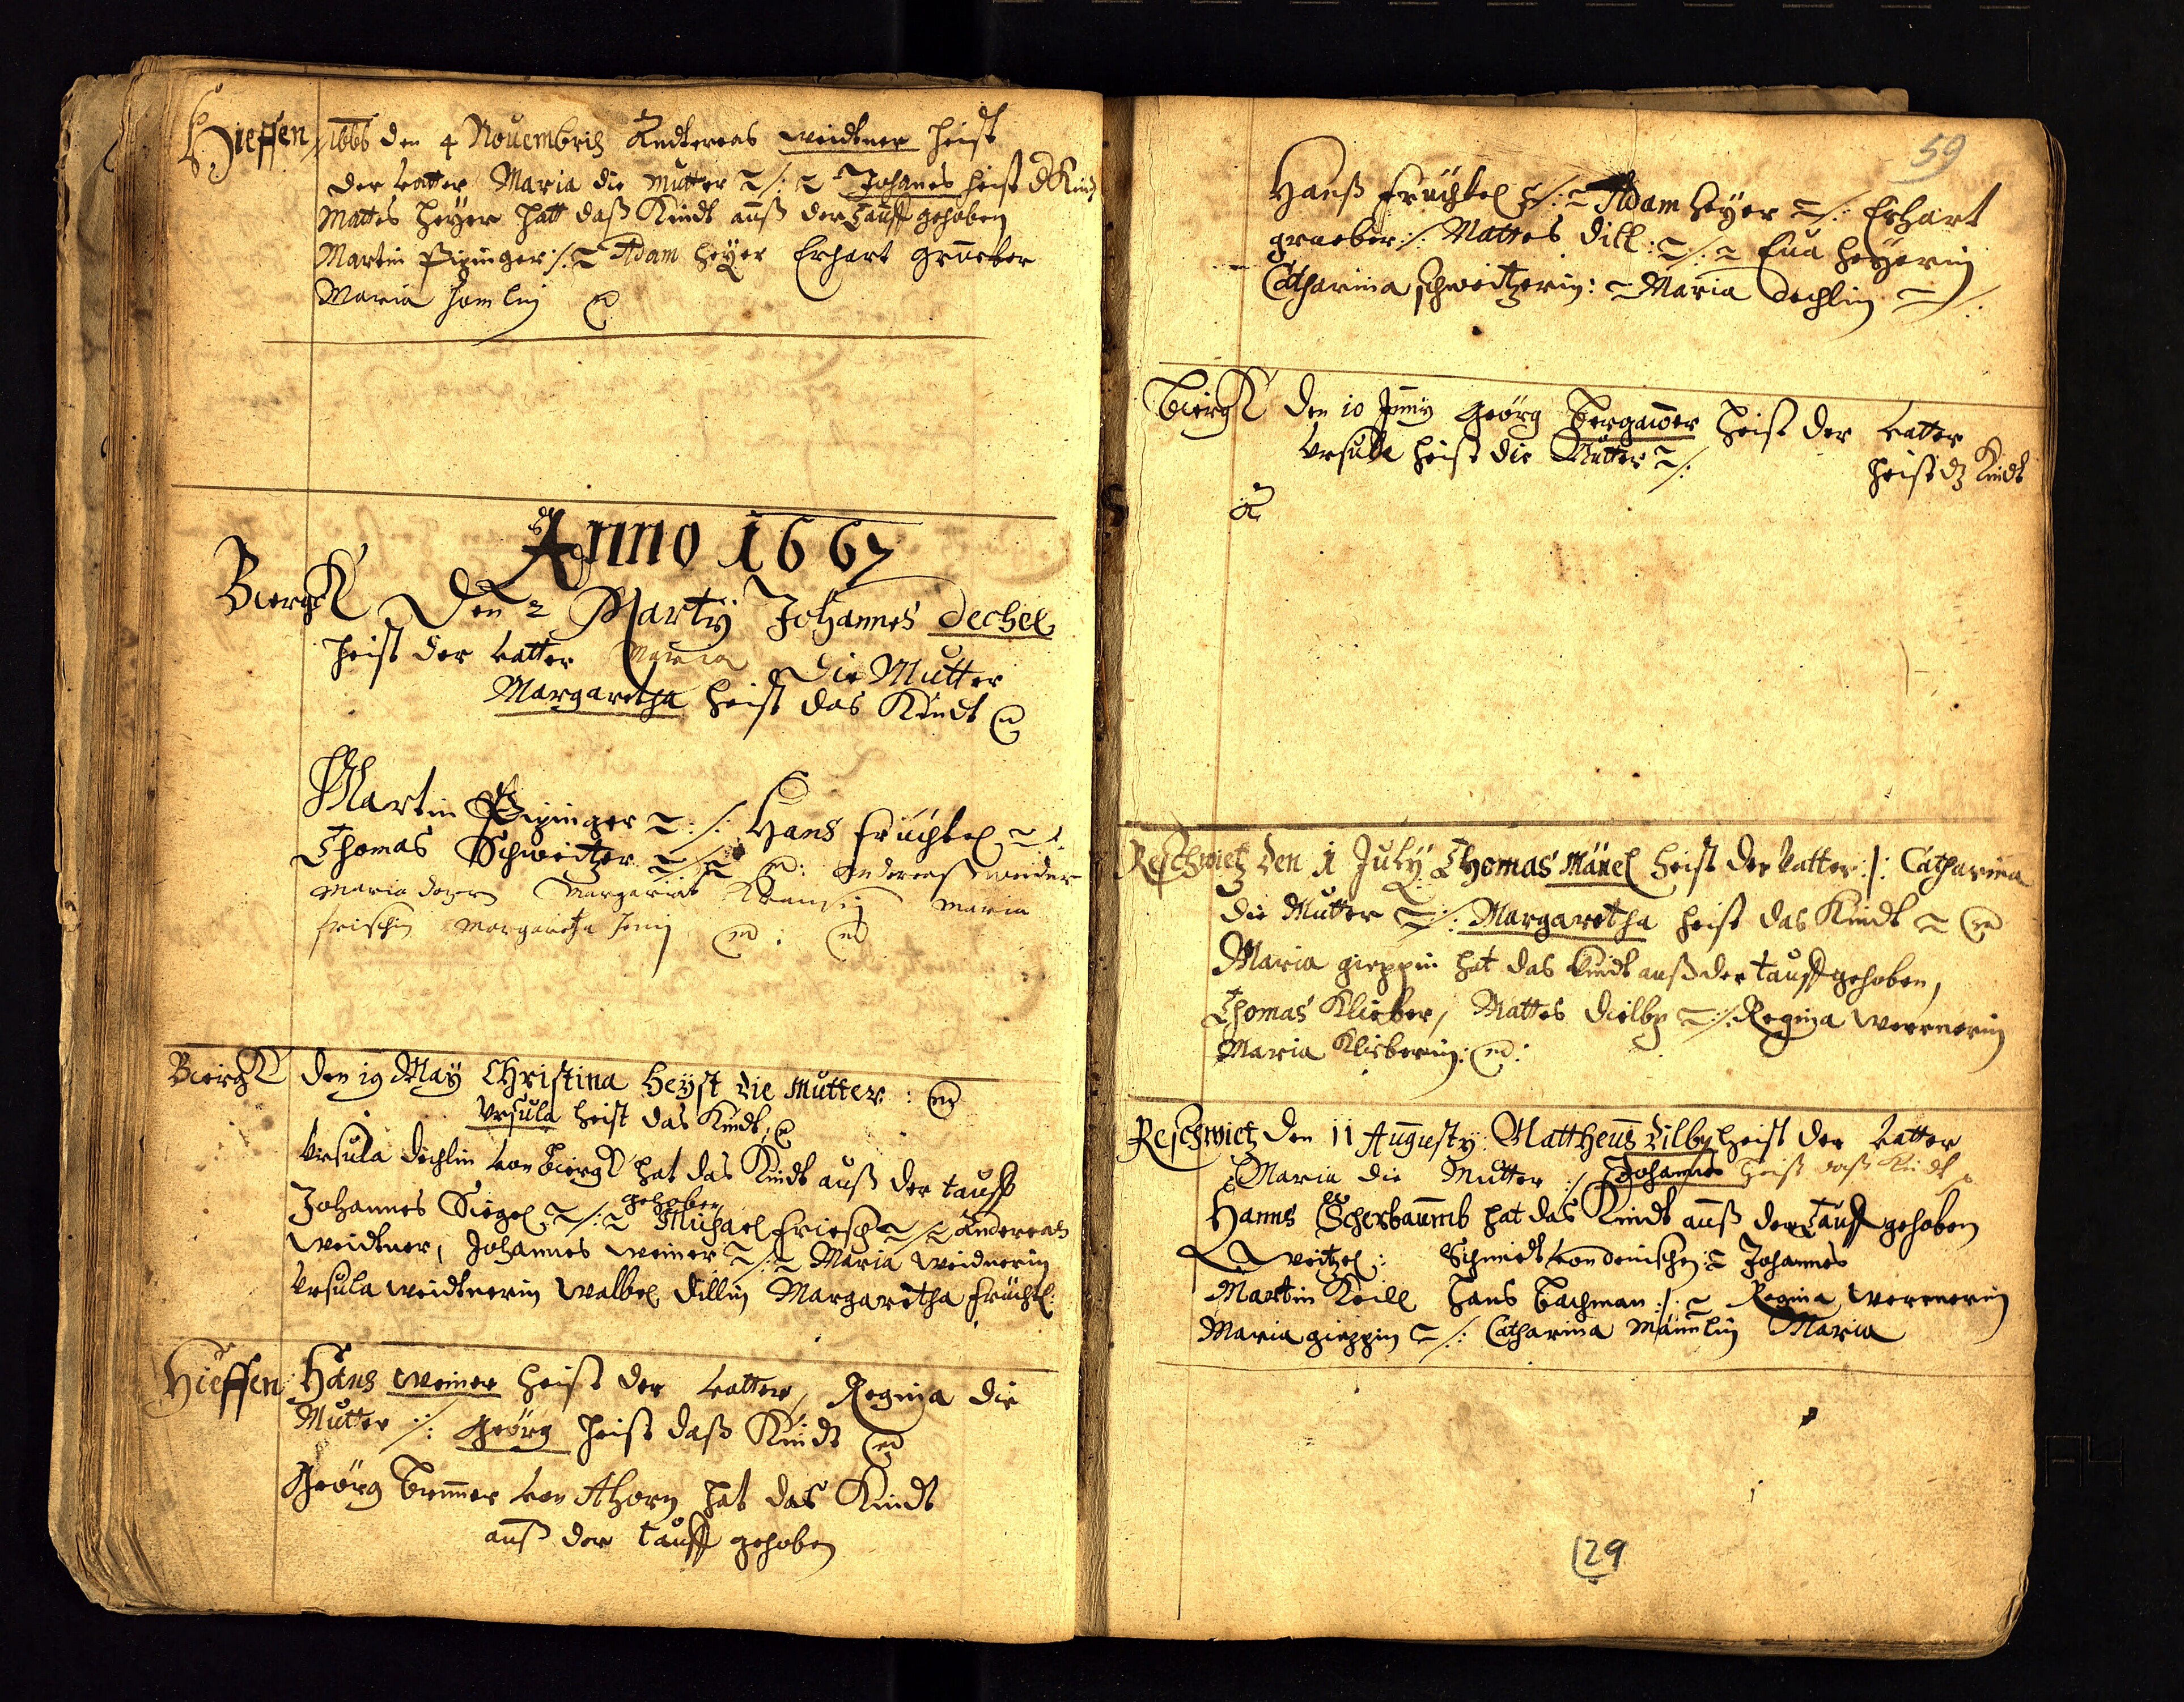 Hieffen 1666 den 4 Nouembris Andtereas weidtner heist
der vatter Maria die Mutter Johanes heist d Kindt
Mattes heyer hatt daß Kindt auß der Tauff gehoben
Martin Pizinger Adam heyer Erhart grueber
Maria
Anno 1667
Biergk Den 2 Marty Johannes dechel
heist der vatter Maria die Mutter
Margaretha heist das Kindt
Martin Pizinger Hans früchtel
Thomas Schweitzer Andereas weidner
Maria Margaria Maria
frischin Margaretha
Biergk den 19 May Christina heyst die Mutter
Vrsula heist das Kindt
Vrsula dechlin von Biergk hat das Kindt auß der tauff
gehoben
Johannes Siegel Michael friesch Andereas
weidtner, Johannes weiner Maria weidnerin
Vrsula weidtnerin walbel dillin Margaretha früchtl:
Hieffen Hans weiner heist der vatter, Regina die
Mutter Geörg heist daß Kindt
Geörg von Ahorn hat das Kindt
auß der tauff gehoben
59
Hanß früchtel Adam heyer Erhart
grueber Mattes dill Eua heyerin
Catharina schweitzerin: Maria dechlin
Biergk den 10 Juny Geörg bergauer heist der vatter
Vrsula heist die Mutter heist dz Kindt
Reschwietz den 1 July Thomas Mänel heist der vatter Catharina
die Mutter Margaretha heist das Kindt
Maria gieppin hat das Kindt auß der tauff gehoben,
Thomas Klieber, Mattes dielby Regina wernerin
Maria Klieberin:
Reschwietz den 11 Augusty: Mattheus dilby heist der vatter
Maria die Mutter Johannes heist daß Kindt
Hanns Scherbaumb hat das Kindt auß der Tauff gehoben
weitzel: Schmidt von Johannes
Martin Keill hans bachman Regina wernerin
Maria gieppin Catharina Männlin Maria
129